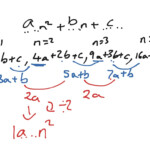 a..n² + bn + c..
1 n=2 n=3 n
b+c, 4a+2b+c, 9a+3b+c, 16a
3a+b 5a+b 7a+b
2a 2a
↓ 2÷2
1a..n²